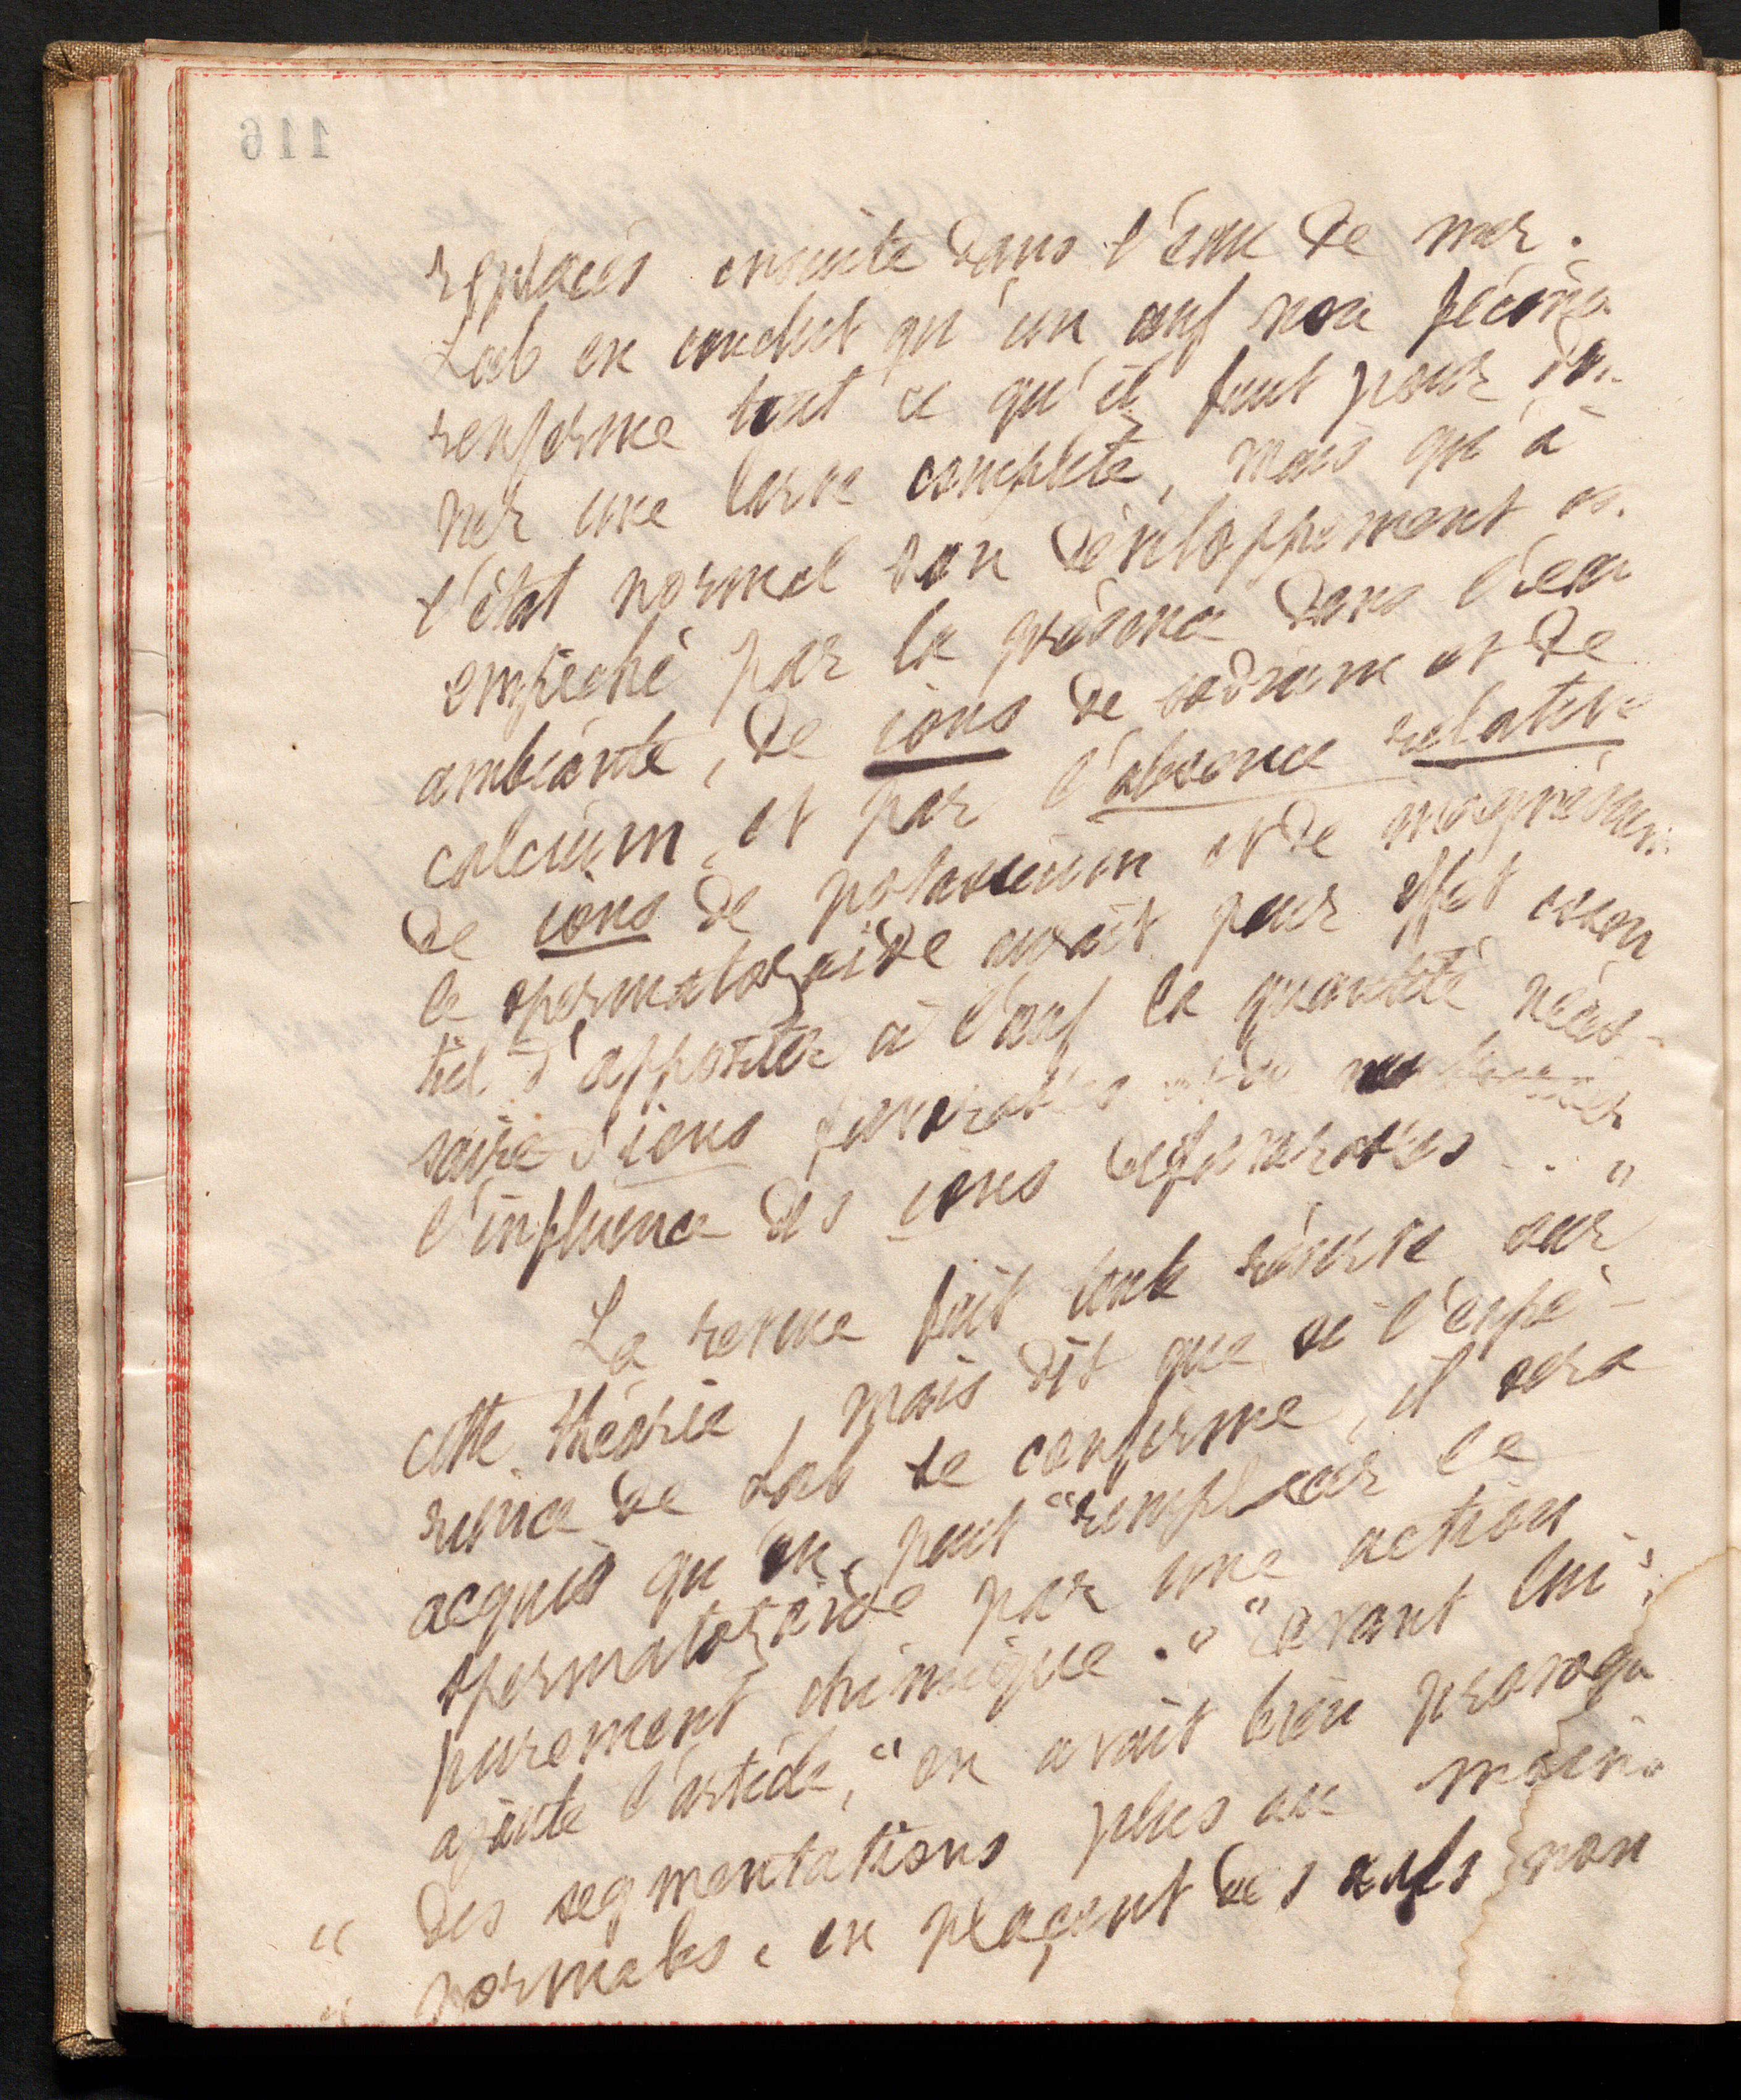 116
replacés ensuite dans l'eau de mer.
Loeb en conclut qu'un œuf non fécond
renferme tout ce qu'il faut pour don
ner une larve complète, mais qu'à
l'état normal son développement es.
empêché par la présence dans l'eau
ambiante, de ions de sodium et de
calcium, et par l'absence relative
de ions de potassium et de magnésium.
le spermatozoïde aurait pour effet essen
tiel d'apporter à l'œuf la quantité néces-
saire d'ions favorables et de
l'influence des ions défavorables . . "
La revue fait toute réserve sur
cette théorie, mais dit que si l'expé-
rience de Loeb se confirme, il sera
acquis qu'on peut "remplacer le
spermatozoïde par une action
purement chimique." "avant lui",
ajoute l'article, "on avait bien provoqu
" des segmentations plus ou moins
" normales, en plaçant des œufs non